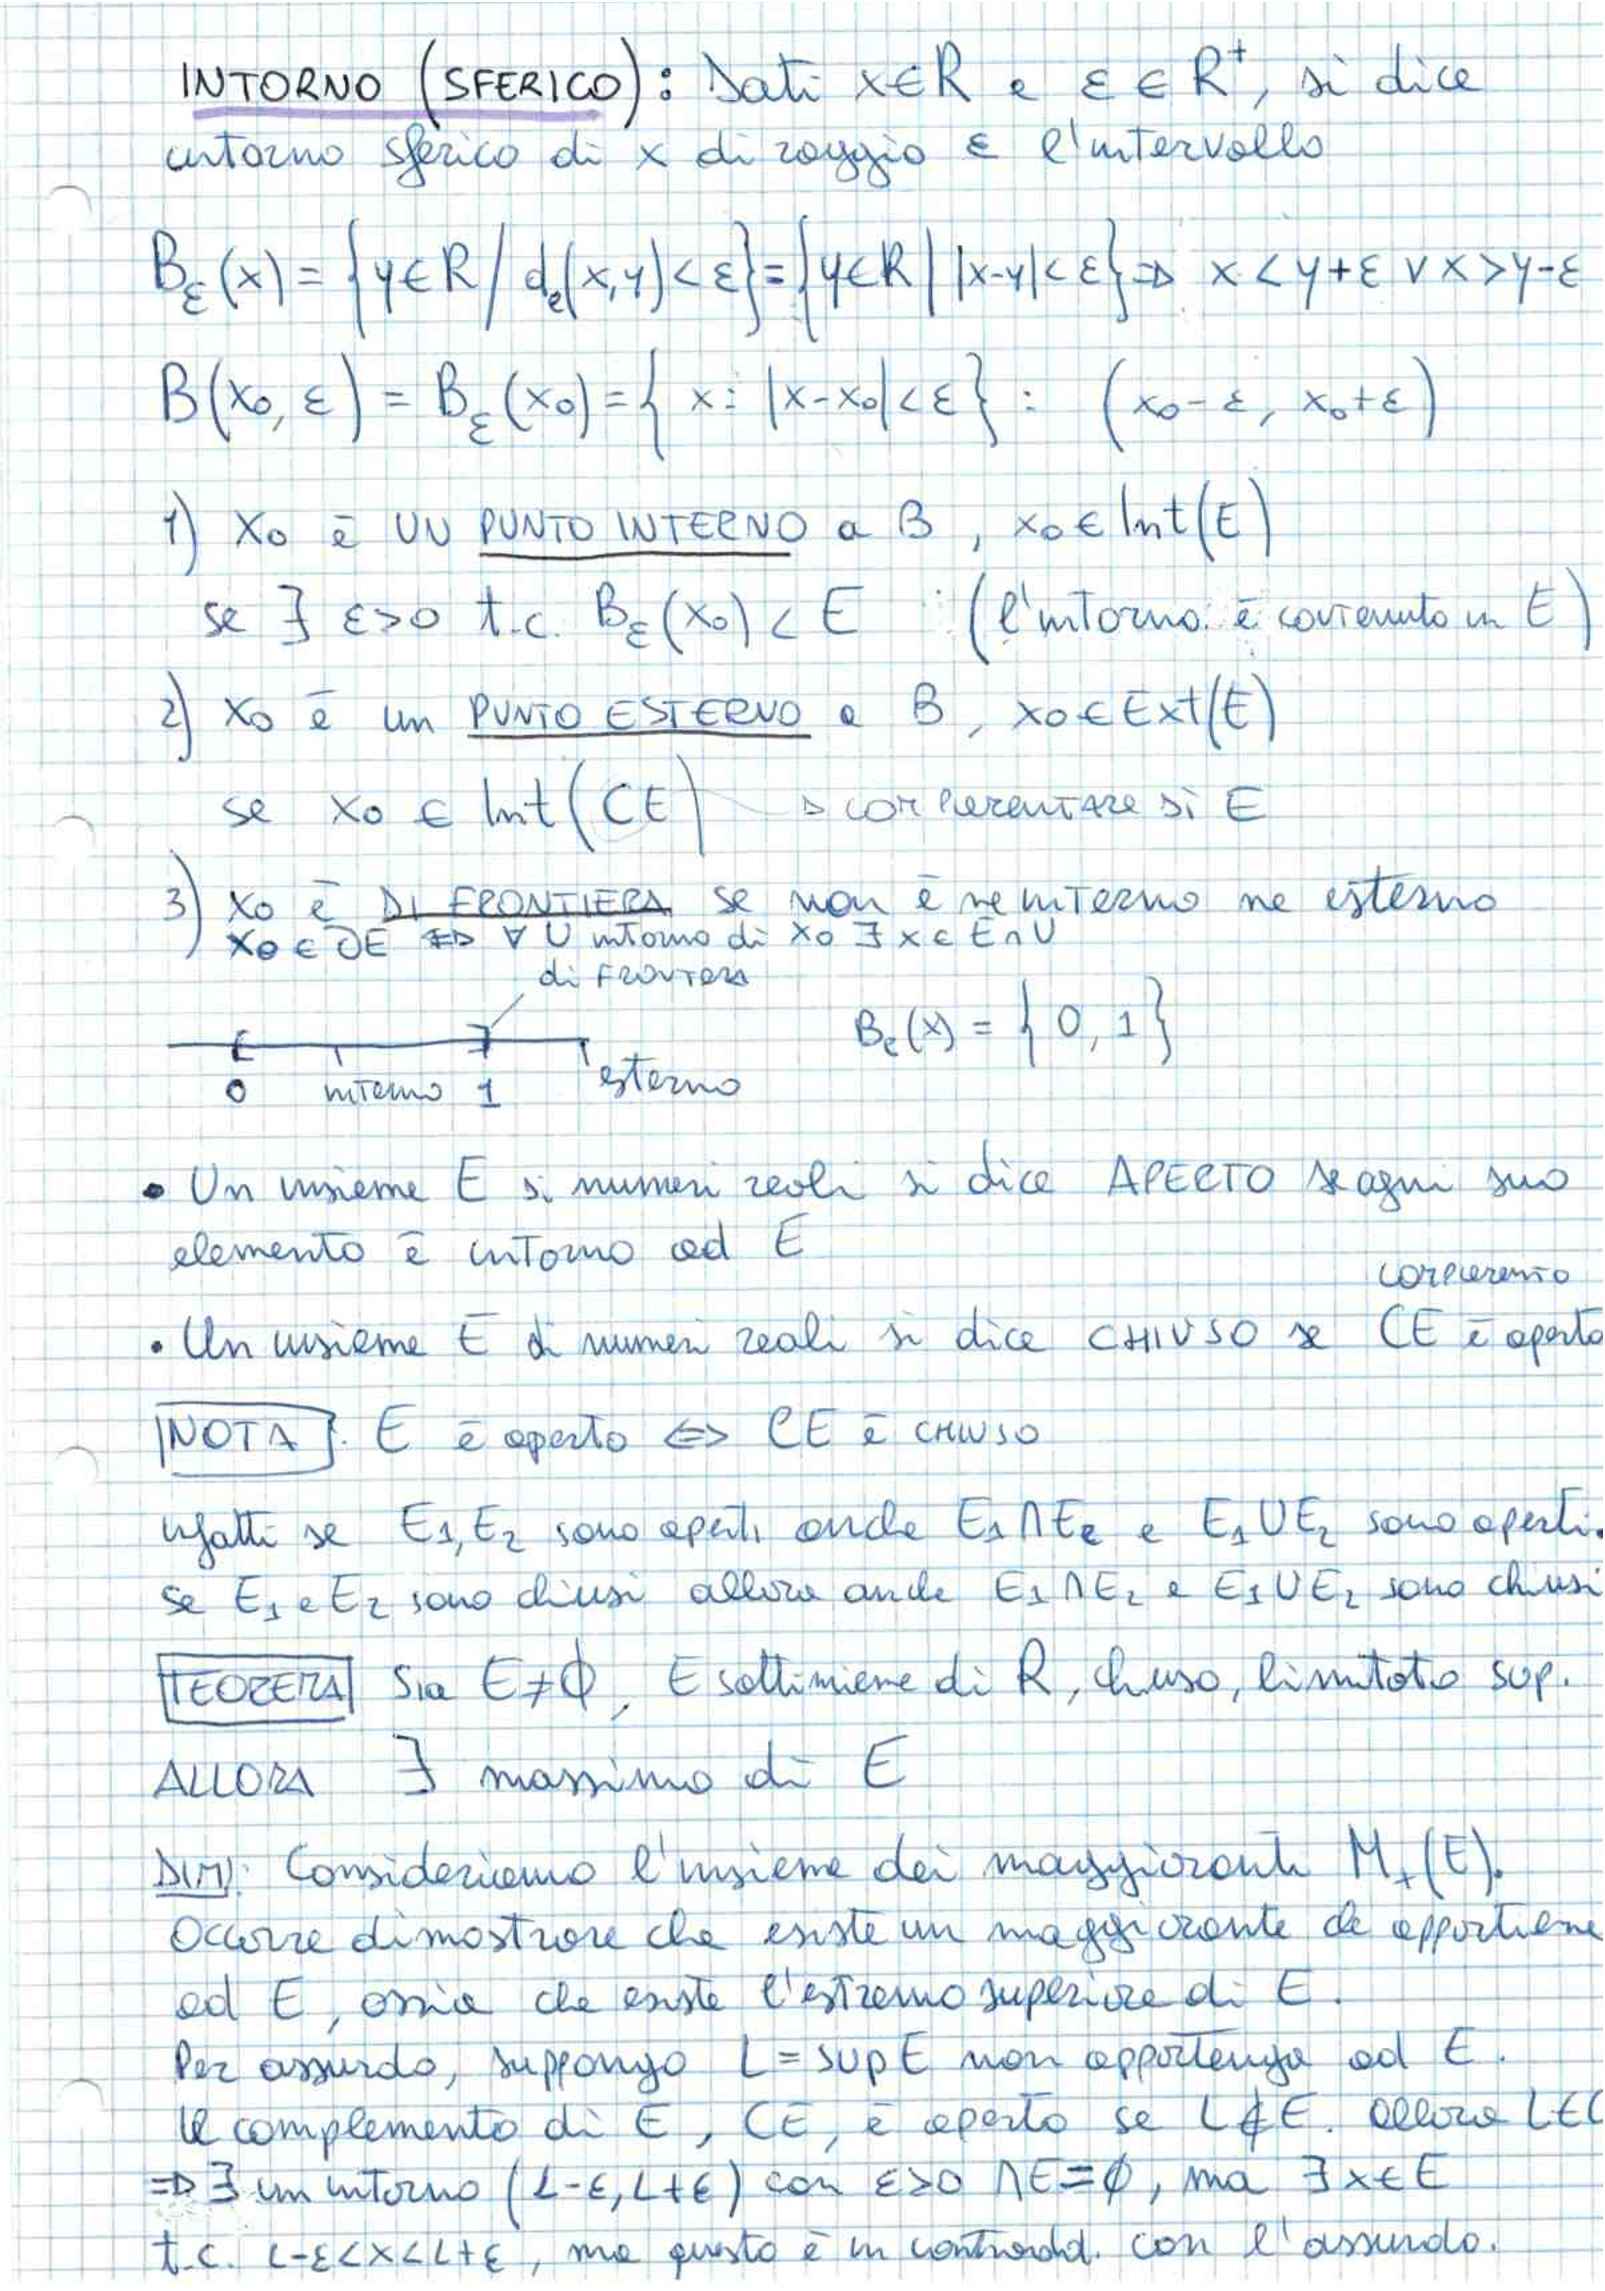 INTORNO (SFERICO): Dati x∈R e ε∈R⁺, si dice
intorno sferico di x di raggio ε l'intervallo
B_ε(x) = {y∈R / d_e(x,y)<ε} = {y∈R | |x-y|<ε} ⇒ x<y+ε ∨ x>y-ε
B(x₀, ε) = B_ε(x₀) = { x: |x-x₀|<ε } : (x₀-ε, x₀+ε)
1) x₀ è UN PUNTO INTERNO a B, x₀∈Int(E)
se ∃ ε>0 t.c. B_ε(x₀) < E : (l'intorno è contenuto in E)
2) x₀ è un PUNTO ESTERNO a B, x₀∈Ext(E)
se x₀ ∈ Int(CE) → complementare di E
3) x₀ è DI FRONTIERA se non è ne interno ne esterno
x₀∈∂E ⇔ ∀ U intorno di x₀ ∃ x∈E∩U
di FRONTIERA
B_ε(x) = {0, 1}
0 interno 1 esterno
• Un insieme E di numeri reali si dice APERTO se ogni suo
elemento è intorno ad E
COMPLEMENTO
• Un insieme E di numeri reali si dice CHIUSO se CE è aperto
NOTA: E è aperto ⇔ CE è CHIUSO
infatti se E₁,E₂ sono aperti anche E₁∩E₂ e E₁∪E₂ sono aperti.
se E₁ e E₂ sono chiusi allora anche E₁∩E₂ e E₁∪E₂ sono chiusi
TEOREMA Sia E≠∅, E sottinsieme di R, chiuso, limitato sup.
ALLORA ∃ massimo di E
DIM: Consideriamo l'insieme dei maggioranti M₊(E).
Occorre dimostrare che esiste un maggiorante che appartiene
ad E, ossia che esiste l'estremo superiore di E.
Per assurdo, suppongo L = sup E non appartenga ad E.
Il complemento di E, CE, è aperto se L∉E. allora L∈C
⇒ ∃ un intorno (L-ε, L+ε) con ε>0 ∩E=∅, ma ∃x∈E
t.c. L-ε<x<L+ε, ma questo è in contradd. con l'assurdo.